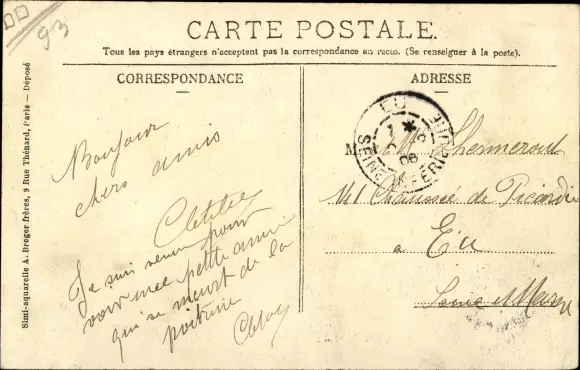 93
CARTE POSTALE.
Tous les pays étrangers n'acceptent pas la correspondance au recto. (Se renseigner à la poste).
CORRESPONDANCE
Bonjour
chers amis
Je suis venue pour
voir une petite amie
qui se meurt de la
poitrine
ADRESSE
M Lhermerout
141 Chaussée de Picardie
a Eu
Seine et Marne
EU
SEINE INFERIEURE
06
Simi-aquarelle A. Breger frères, 9 Rue Thénard, Paris — Déposé